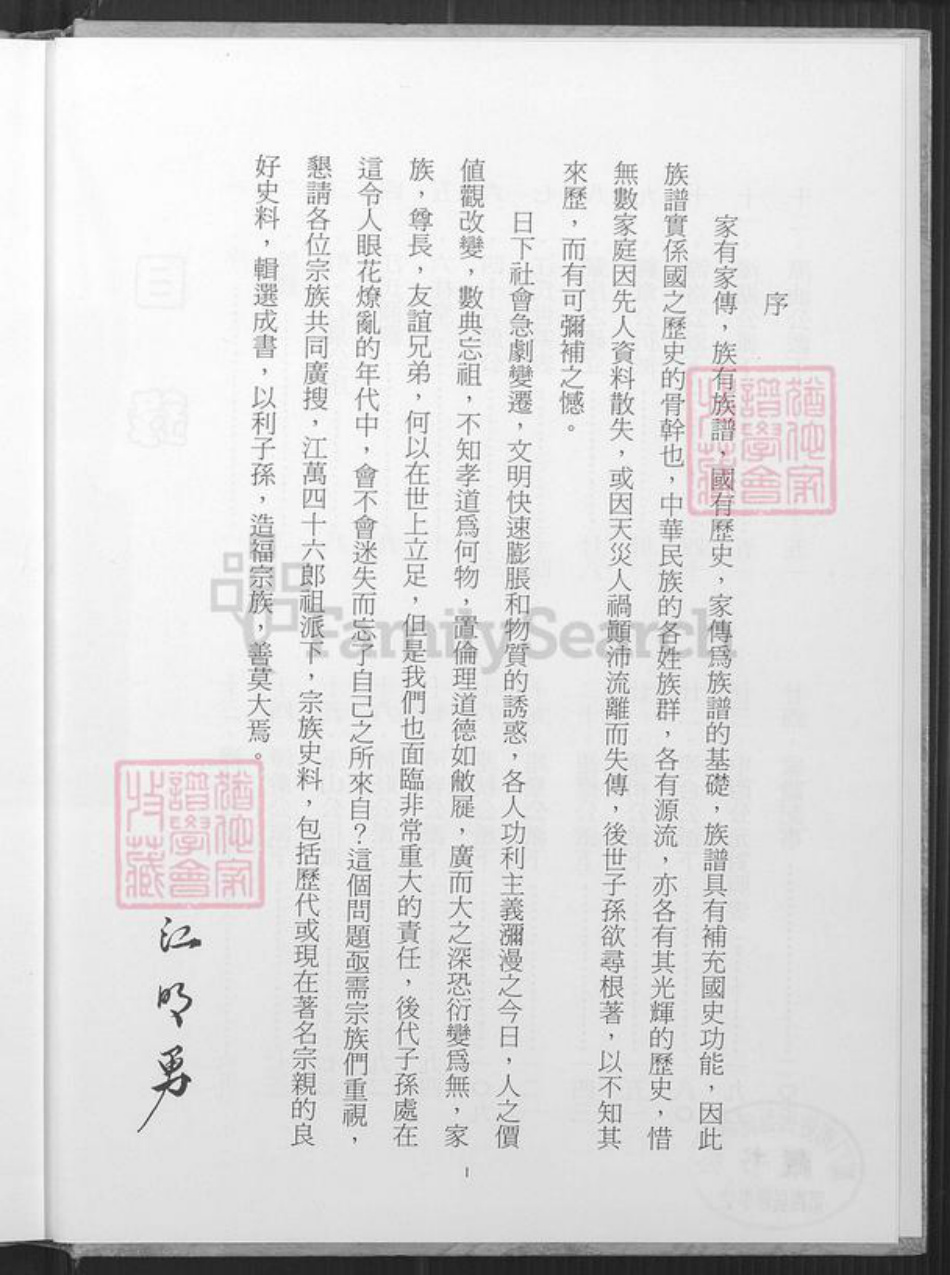 序
家有家傳，族有族譜，國有歷史，家傳爲族譜的基礎，族譜具有補充國史功能，因此
族譜實係國之歷史的骨幹也，中華民族的各姓族群，各有源流，亦各有其光輝的歷史，惜
無數家庭因先人資料散失，或因天災人禍顚沛流離而失傳，後世子孫欲尋根著，以不知其
來歷，而有可彌補之憾。
日下社會急劇變遷，文明快速膨脹和物質的誘惑，各人功利主義瀰漫之今日，人之價
値觀改變，數典忘祖，不知孝道爲何物，置倫理道德如敝屣，廣而大之深恐衍變爲無，家
族，尊長，友誼兄弟，何以在世上立足，但是我們也面臨非常重大的責任，後代子孫處在
這令人眼花燎亂的年代中，會不會迷失而忘了自己之所來自？這個問題亟需宗族們重視，
懇請各位宗族共同廣搜，江萬四十六郎祖派下，宗族史料，包括歷代或現在著名宗親的良
好史料，輯選成書，以利子孫，造福宗族，善莫大焉。
江明勇
1
FamilySearch
譜學會
收藏
譜學會
收藏